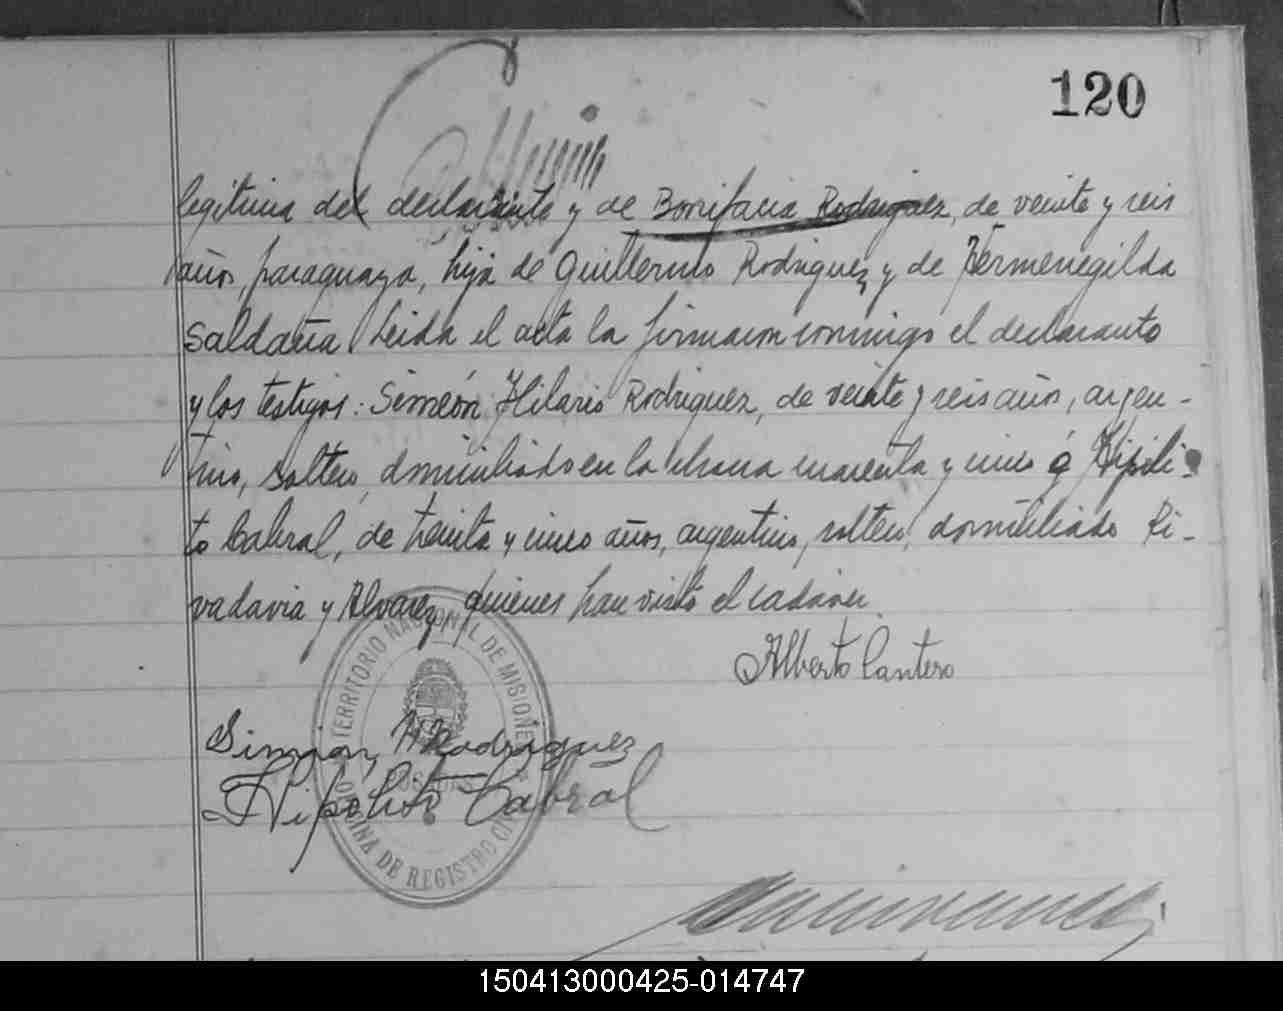 120
legitima del declarante y de Bonifacia Rodriguez, de veinte y seis
años, paraguaya, hija de Guillermo Rodriguez y de Hermenegilda
Saldaña Leida el acta la firmaron conmigo el declarante
y los testigos: Simeón Hilario Rodriguez, de veinte y seis años, argen-
tino, soltero, domiciliado en la chacra cuarenta y cinco é Hipóli-
to Cabral, de treinta y cinco años, argentino, soltero, domiciliado Ri-
vadavia y Alvarez, quienes han visto el cadáver.
Alberto Cantero
Simeon H Rodriguez
Hipolito Cabral
TERRITORIO NACIONAL DE MISIONES
OFICINA DE REGISTRO CIVIL
150413000425-014747